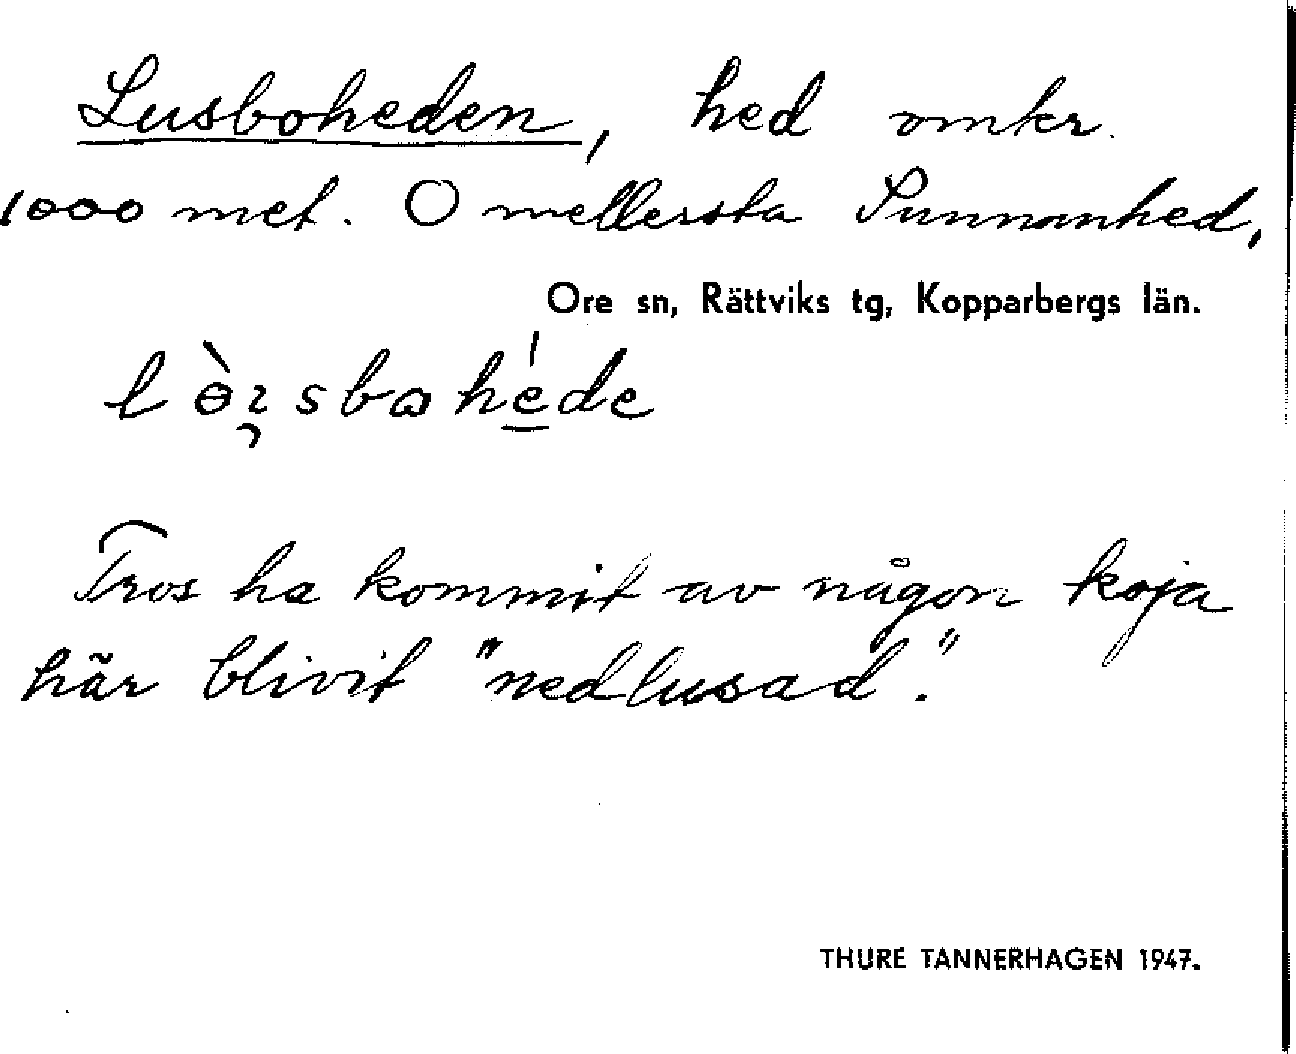 Lusboheden, hed omkr.
1000 met. O mellersta Sunnanhed,
Ore sn, Rättviks tg, Kopparbergs län.
Tros ha kommit av någon koja
här blivit "nedlusad".
THURE TANNERHAGEN 1947.